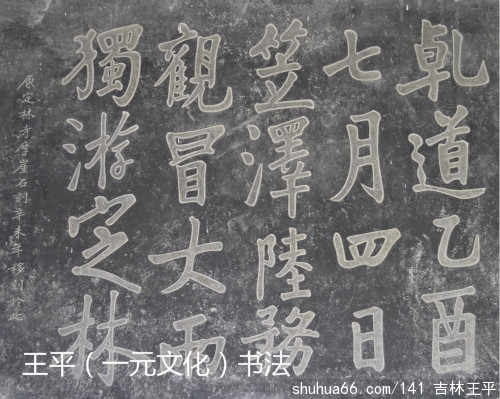 乹道乙酉
七月四日
笠澤陸務
觀冒大雨
獨游定林
原定林寺摩崖石刻辛未年移刊於
王平（一元文化）书法
shuhua66.com/141 吉林王平